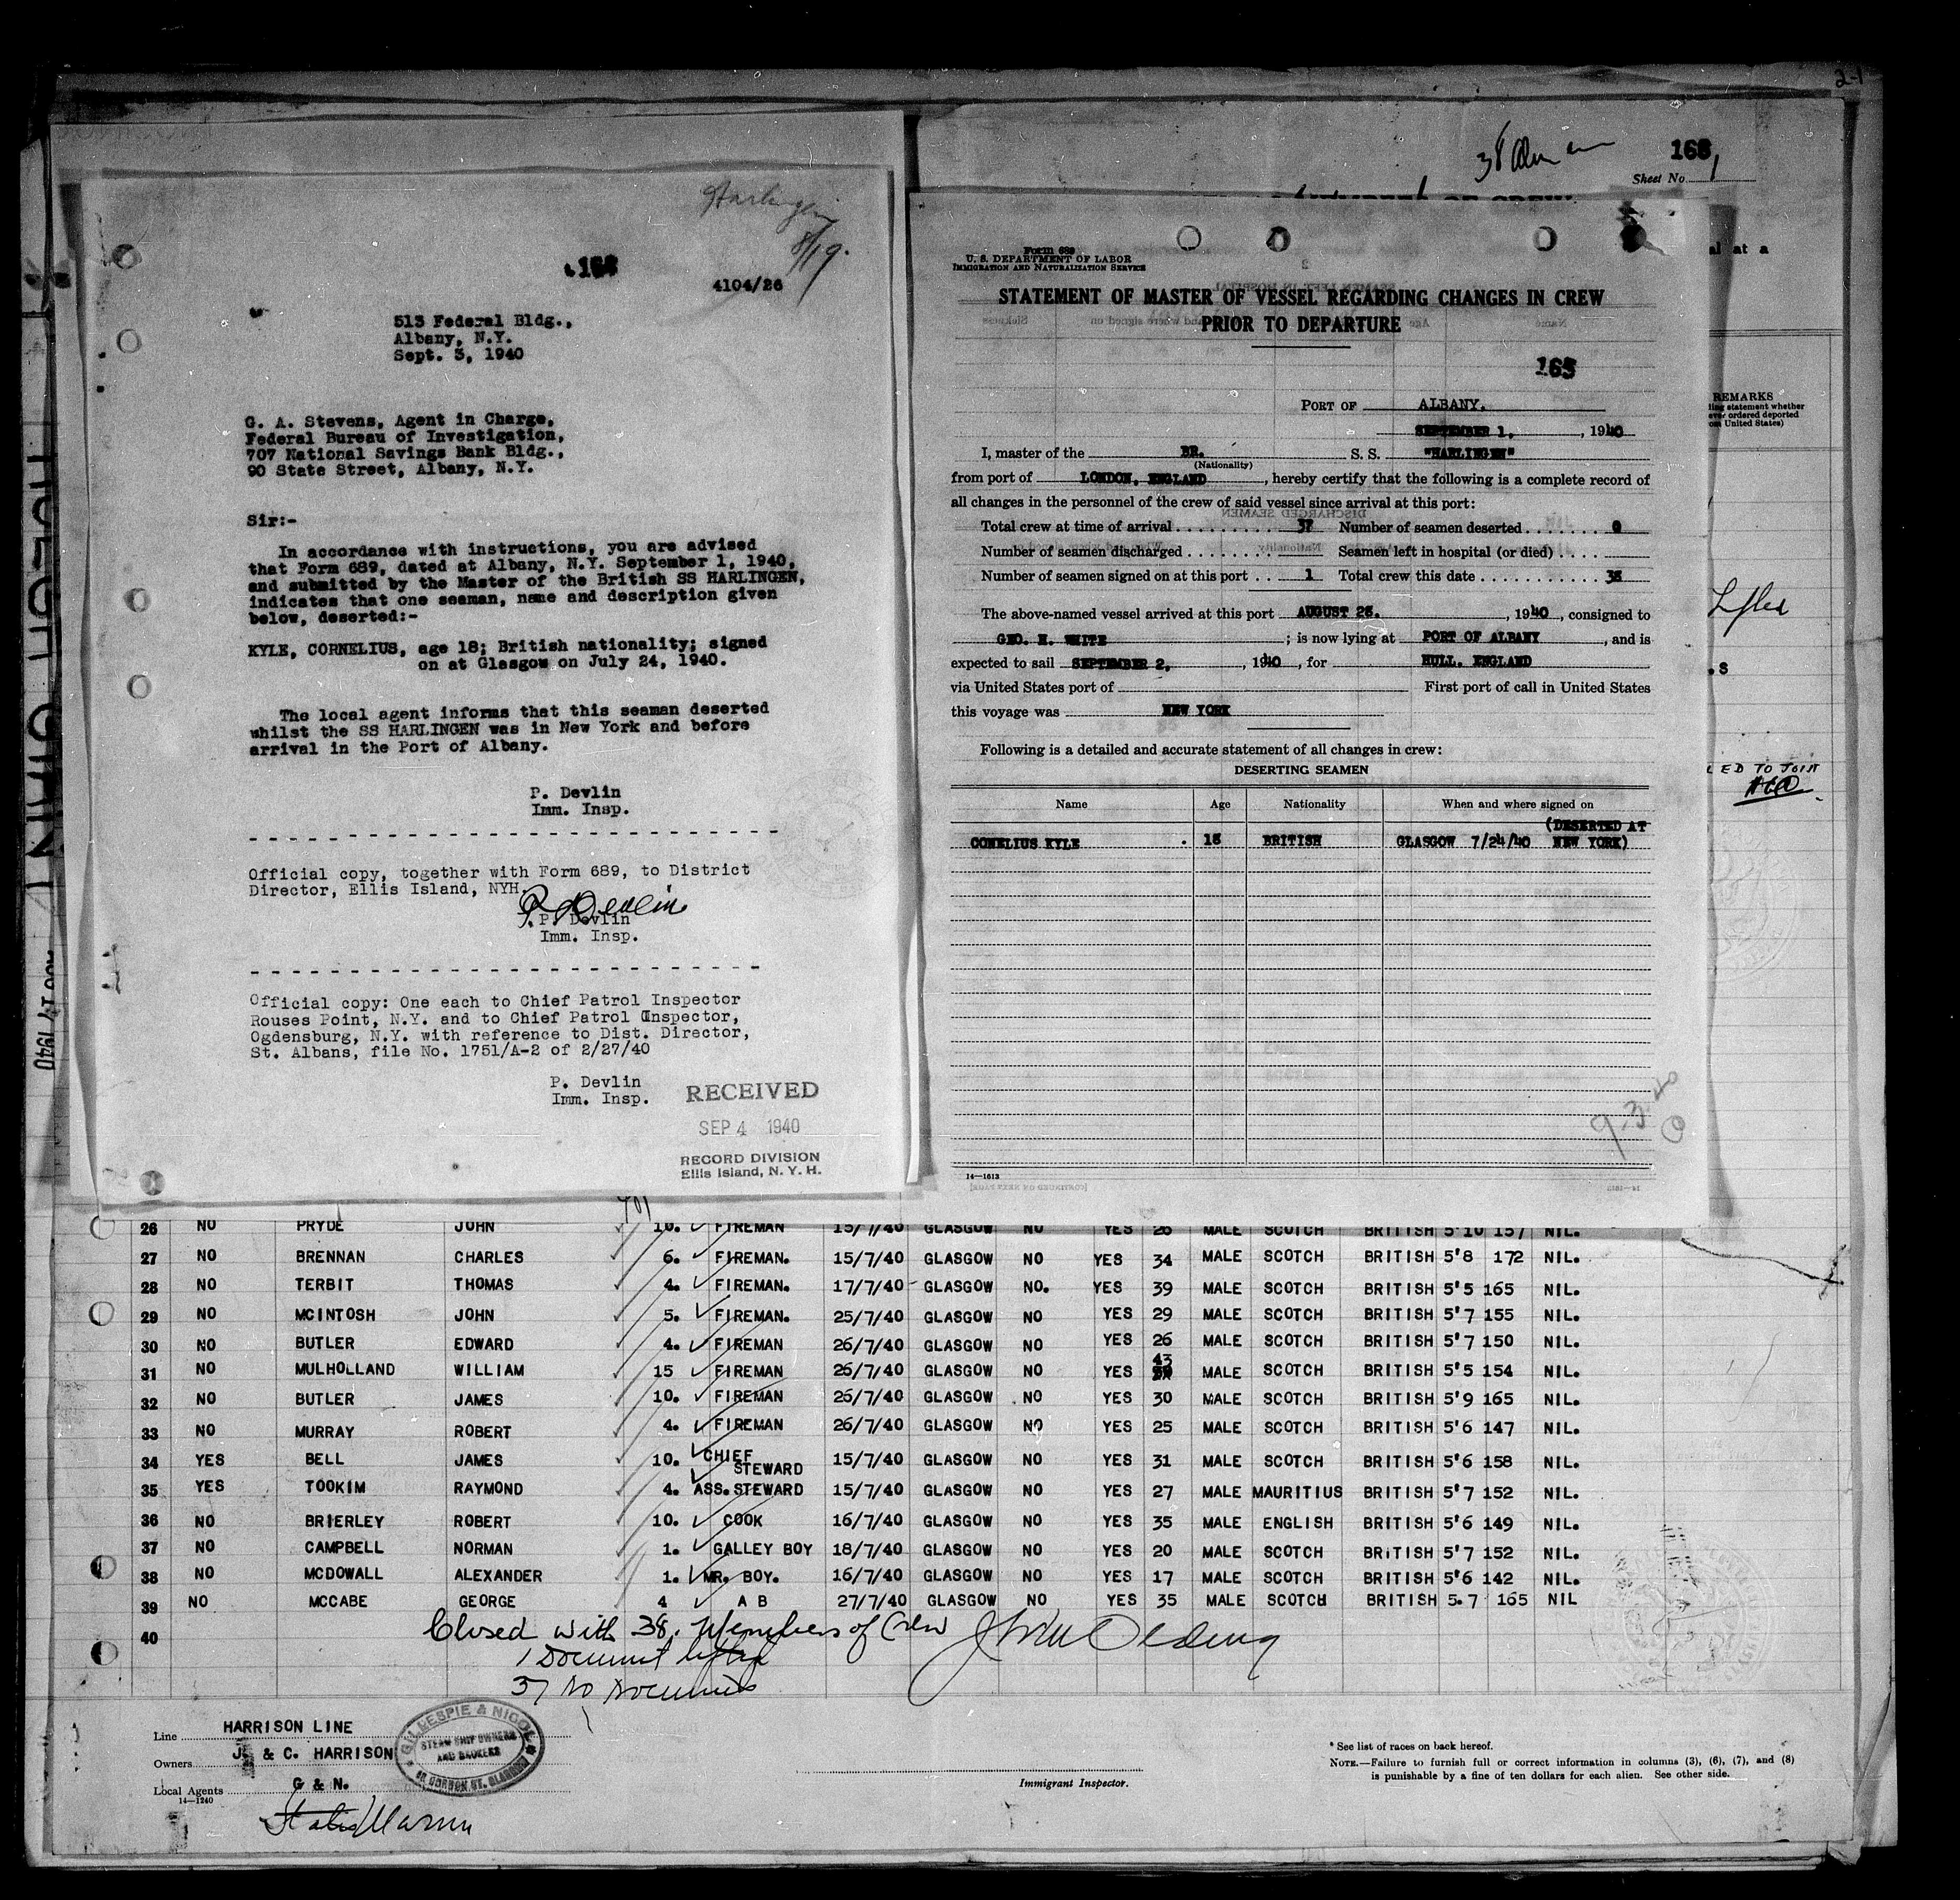 2-1
168
Sheet No. 1
Harlingen
8/19.
168
4104/26
513 Federal Bldg.,
Albany, N.Y.
Sept. 3, 1940
G. A. Stevens, Agent in Charge,
Federal Bureau of Investigation,
707 National Savings Bank Bldg.,
90 State Street, Albany, N.Y.
Sir:-
In accordance with instructions, you are advised
that Form 689, dated at Albany, N.Y. September 1, 1940,
and submitted by the Master of the British SS HARLINGEN,
indicates that one seaman, name and description given
below, deserted:-
KYLE, CORNELIUS, age 18; British nationality; signed
on at Glasgow on July 24, 1940.
The local agent informs that this seaman deserted
whilst the SS HARLINGEN was in New York and before
arrival in the Port of Albany.
P. Devlin
Imm. Insp.
Official copy, together with Form 689, to District
Director, Ellis Island, NYH.
P Devlin
P. Devlin
Imm. Insp.
Official copy: One each to Chief Patrol Inspector
Rouses Point, N.Y. and to Chief Patrol Inspector,
Ogdensburg, N.Y. with reference to Dist. Director,
St. Albans, file No. 1751/A-2 of 2/27/40
P. Devlin
Imm. Insp.
RECEIVED
SEP 4 1940
RECORD DIVISION
Ellis Island, N. Y. H.
Form 689
U. S. DEPARTMENT OF LABOR
IMMIGRATION AND NATURALIZATION SERVICE
STATEMENT OF MASTER OF VESSEL REGARDING CHANGES IN CREW
PRIOR TO DEPARTURE
165
PORT OF ALBANY.
SEPTEMBER 1, , 1940
I, master of the BR. S. S. "HARLINGEN"
(Nationality)
from port of LONDON, ENGLAND , hereby certify that the following is a complete record of
all changes in the personnel of the crew of said vessel since arrival at this port:
Total crew at time of arrival 37 Number of seamen deserted 0
Number of seamen discharged Seamen left in hospital (or died)
Number of seamen signed on at this port 1 Total crew this date 38
The above-named vessel arrived at this port AUGUST 28. , 1940 , consigned to
GEO. H. WHITE ; is now lying at PORT OF ALBANY , and is
expected to sail SEPTEMBER 2, , 1940 , for HULL. ENGLAND
via United States port of First port of call in United States
this voyage was NEW YORK
Following is a detailed and accurate statement of all changes in crew:
DESERTING SEAMEN
Name Age Nationality When and where signed on
CONELIUS KYLE 18 BRITISH GLASGOW 7/24/40 (DESERTED AT
NEW YORK)
14—1613
al at a
REMARKS
ling statement whether
ever ordered deported
om United States)
Lifted
.S
LED TO JOIN
26 NO PRYDE JOHN 10. FIREMAN 15/7/40 GLASGOW NO YES 26 MALE SCOTCH BRITISH 5'10 157 NIL.
27 NO BRENNAN CHARLES 6. FIREMAN. 15/7/40 GLASGOW NO YES 34 MALE SCOTCH BRITISH 5'8 172 NIL.
28 NO TERBIT THOMAS 4. FIREMAN. 17/7/40 GLASGOW NO. YES 39 MALE SCOTCH BRITISH 5'5 165 NIL.
29 NO MCINTOSH JOHN 5. FIREMAN. 25/7/40 GLASGOW NO YES 29 MALE SCOTCH BRITISH 5'7 155 NIL.
30 NO BUTLER EDWARD 4. FIREMAN 26/7/40 GLASGOW NO YES 26 MALE SCOTCH BRITISH 5'7 150 NIL.
31 NO MULHOLLAND WILLIAM 15 FIREMAN 26/7/40 GLASGOW NO YES 43 MALE SCOTCH BRITISH 5'5 154 NIL.
32 NO BUTLER JAMES 10. FIREMAN 26/7/40 GLASGOW NO YES 30 MALE SCOTCH BRITISH 5'9 165 NIL.
33 NO MURRAY ROBERT 4. FIREMAN 26/7/40 GLASGOW NO YES 25 MALE SCOTCH BRITISH 5'6 147 NIL.
34 YES BELL JAMES 10. CHIEF STEWARD 15/7/40 GLASGOW NO YES 31 MALE SCOTCH BRITISH 5'6 158 NIL.
35 YES TOOKIM RAYMOND 4. ASS. STEWARD 15/7/40 GLASGOW NO YES 27 MALE MAURITIUS BRITISH 5'7 152 NIL.
36 NO BRIERLEY ROBERT 10. COOK 16/7/40 GLASGOW NO YES 35 MALE ENGLISH BRITISH 5'6 149 NIL.
37 NO CAMPBELL NORMAN 1. GALLEY BOY 18/7/40 GLASGOW NO YES 20 MALE SCOTCH BRITISH 5'7 152 NIL.
38 NO MCDOWALL ALEXANDER 1. MR. BOY. 16/7/40 GLASGOW NO YES 17 MALE SCOTCH BRITISH 5'6 142 NIL.
39 NO MCCABE GEORGE 4 A B 27/7/40 GLASGOW NO YES 35 MALE SCOTCH BRITISH 5.7 165 NIL
40 Closed with 38. Members of Crew
1 Document lifted
37 No Documents
Line HARRISON LINE
Owners J. & C. HARRISON
Local Agents G & N.
14—1240
GILLESPIE & NICOL
STEAM SHIP OWNERS
AND BROKERS
GORDON ST. GLASGOW
Immigrant Inspector.
* See list of races on back hereof.
NOTE.—Failure to furnish full or correct information in columns (3), (6), (7), and (8)
is punishable by a fine of ten dollars for each alien. See other side.